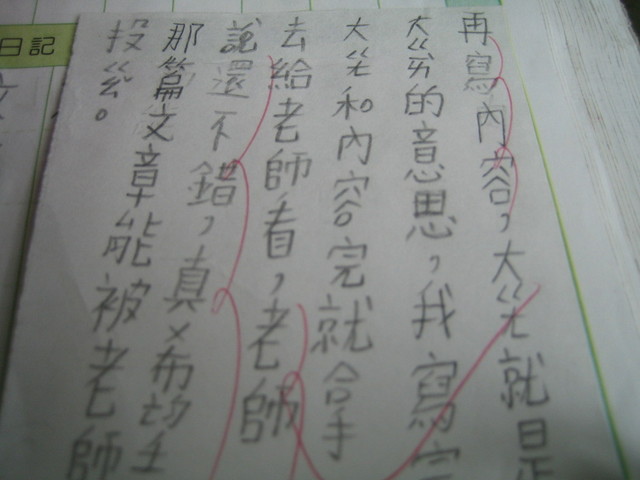 再寫內容，大ㄍㄤ就是
大ㄍㄤ的意思，我寫完
大ㄍㄤ和內容完就拿
去給老師看，老師
說還不錯，真希望
那篇文章能被老師
投ㄍㄠ。
日記